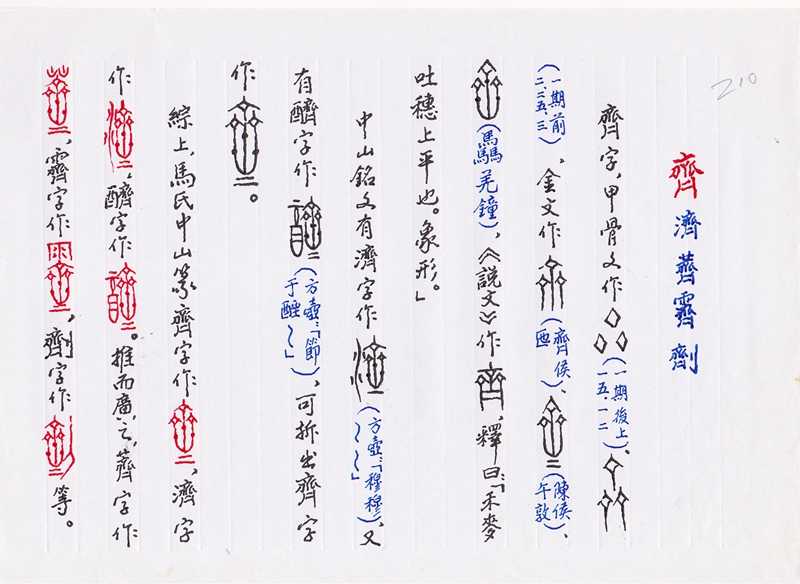 210
齊 濟 薺 霽 劑
齊字，甲骨文作(一期後上一五．一二)、
(一期前二．二五．三)、金文作(齊侯匜)、(陳侯午敦)、
(驫羌鐘)、《說文》作，釋曰：「禾麥
吐穗上平也。象形」
中山銘文有濟字作(方壺：「穆穆～～」)，又
有字作(方壺：「節于～」)，可拆出齊字
作。
綜上，馬氏中山篆齊字作、濟字
作，字作。推而廣之，薺字作
、霽字作，劑字作等。